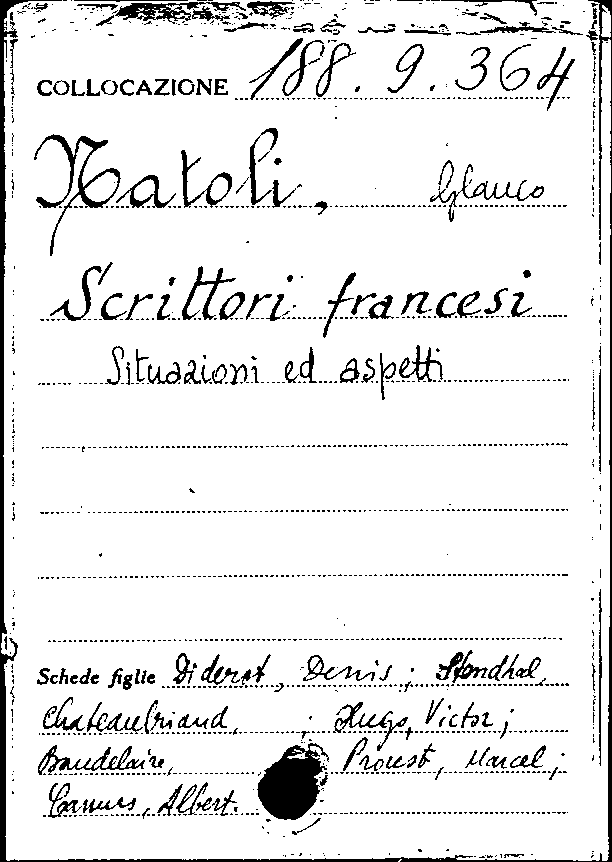 COLLOCAZIONE 188.9.364
Natoli, Glauco
Scrittori francesi
Situazioni ed aspetti
Schede figlie Diderot, Denis; Stendhal,
Chateaubriand, ; Hugo, Victor;
Baudelaire, Proust, Marcel;
Camus, Albert.